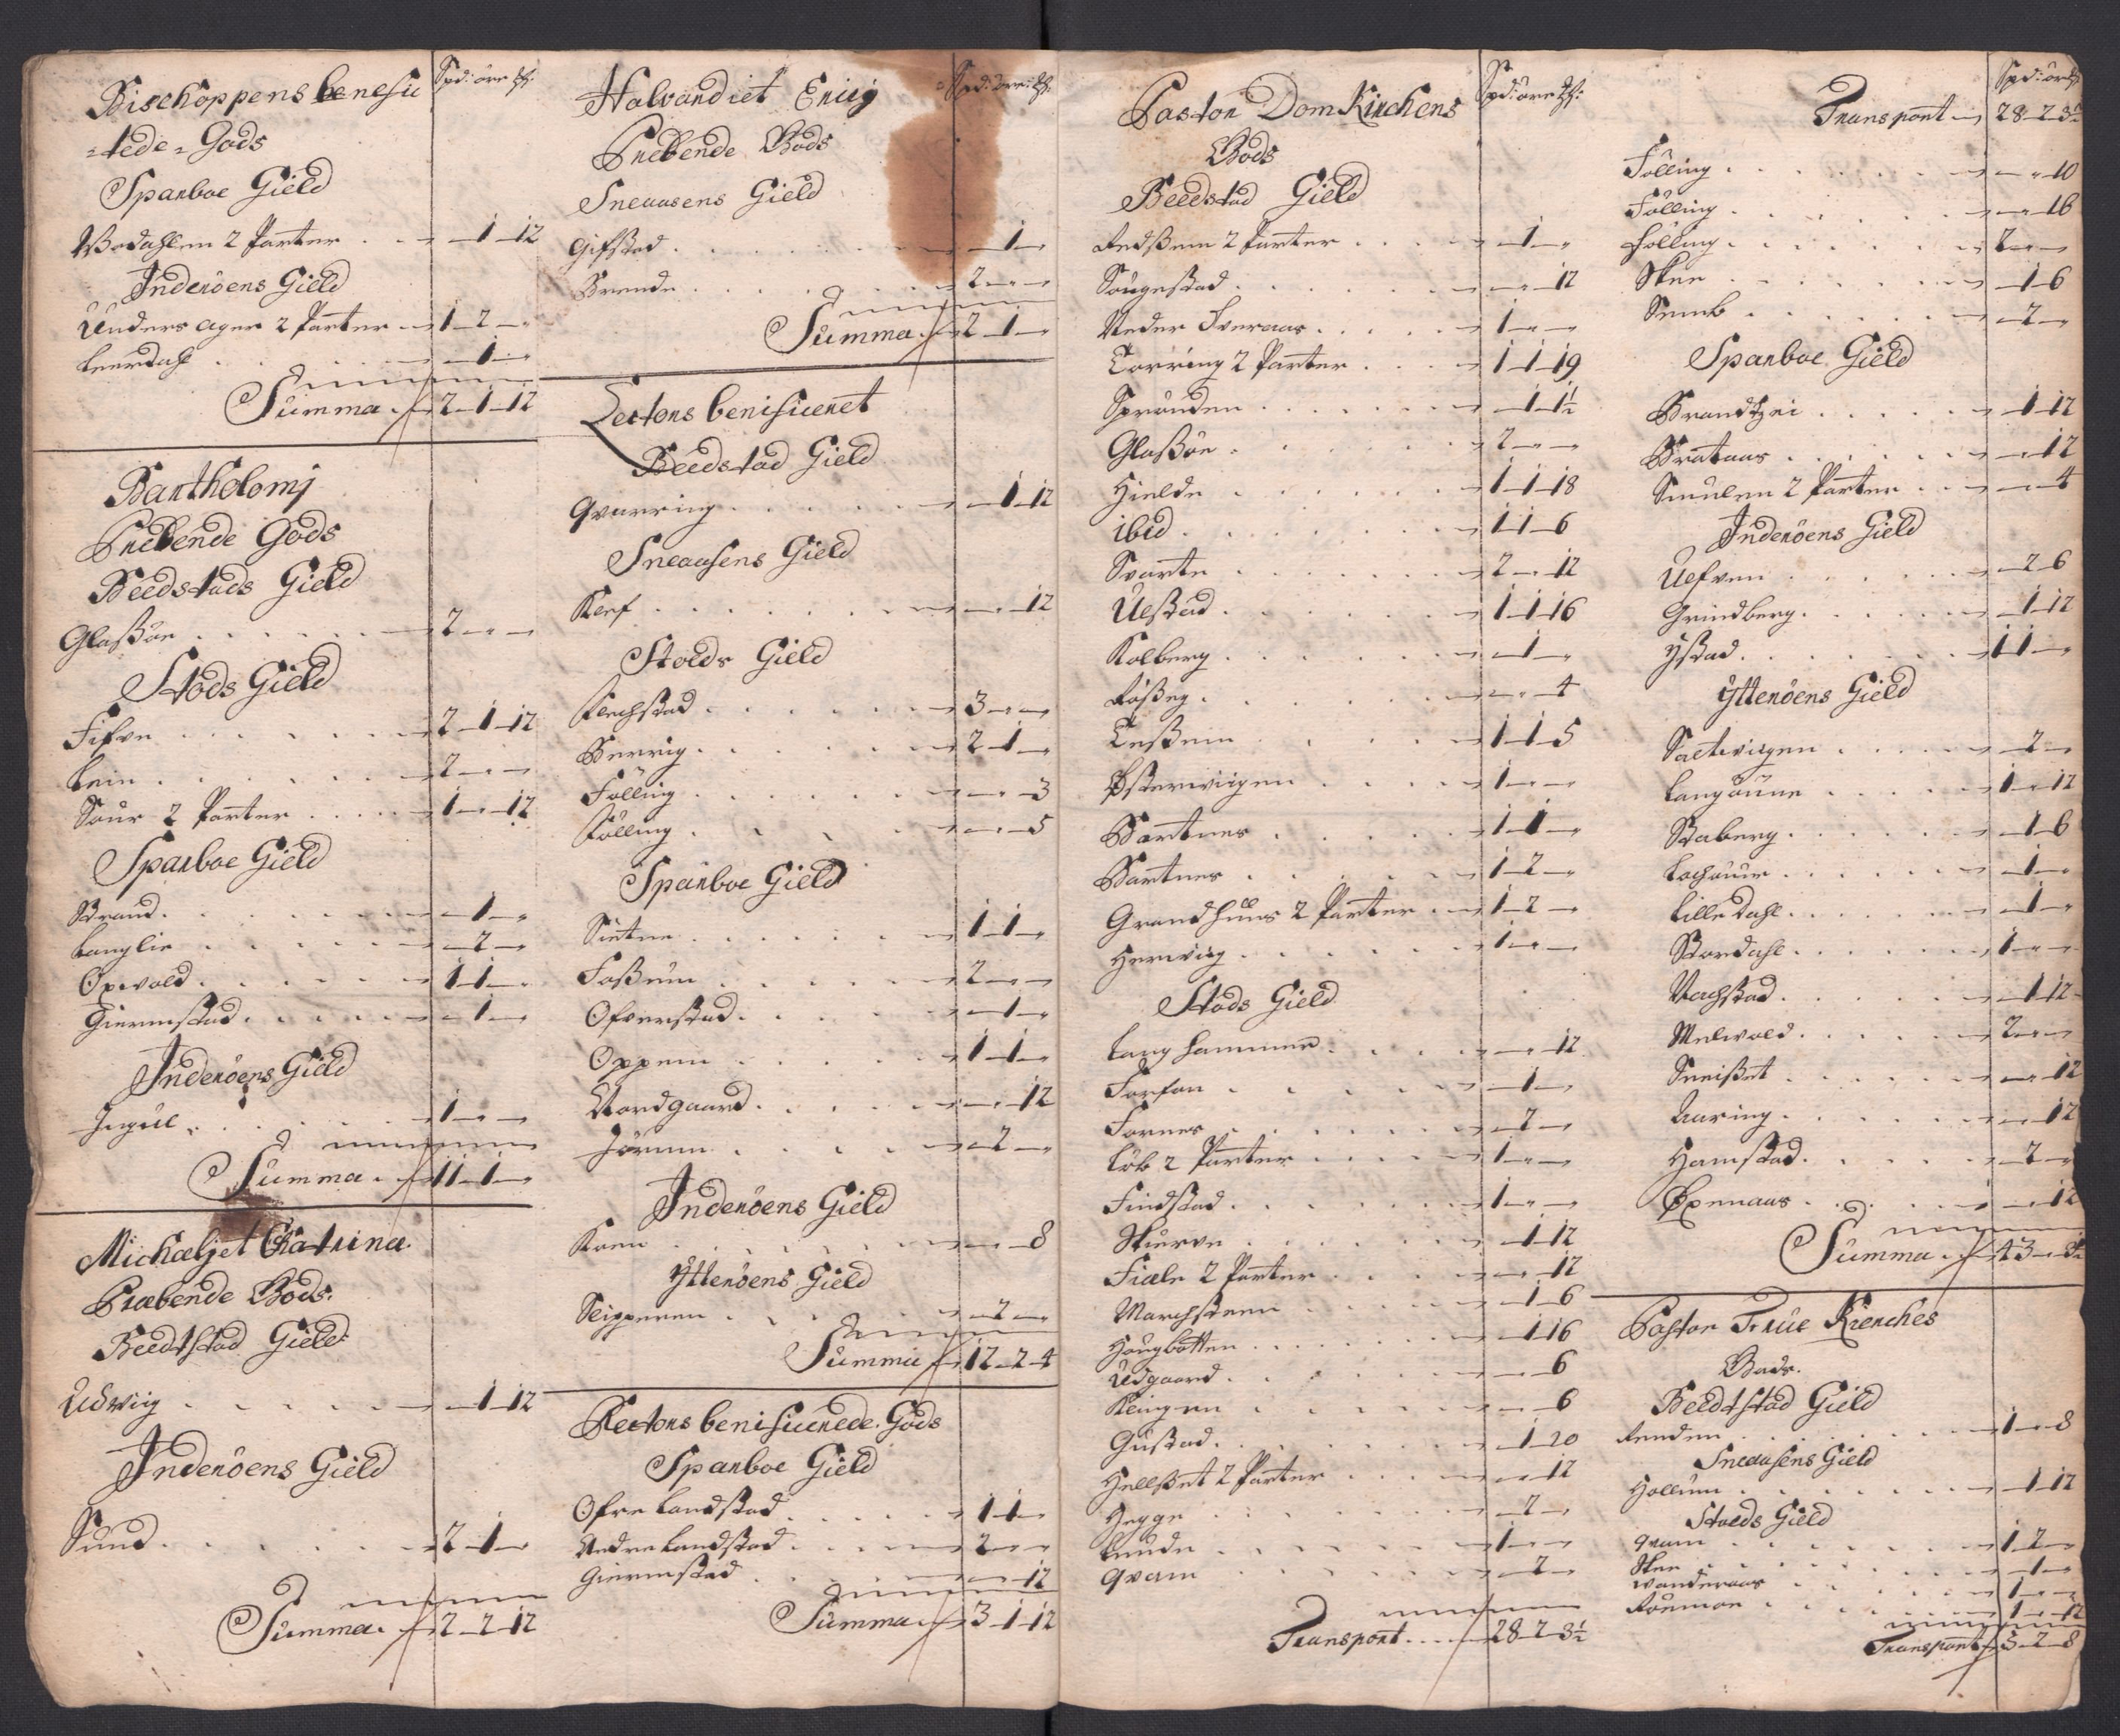 Bischoppens benefic Spd: öre
-tede-Gods
Sparboe Gield
Wodahlen 2 Parter 1 12
Inderöens Gield
Unders ager 2 Parter 1 2
Leerdahl 1
Summa 2 1 12
Bartholomj
Prebende Gods
Beedstads Gield
Glaßöe 2
Stods Gield
Fifve 2 1 12
Lein 2
Sour 2 Parter 1 12
Sparboe Gield
Strand 1
Langlie 2
Opwold 1 1
Giermstad 1
Inderöens Gield
Ingull 1
Summa 11 1
Michæljet Chatrina
Præbende Gods.
Beedtstad Gield
Udwiig 1 12
Inderöens Gield
Sund 2 1
Summa 2 2 12
Halvandiet Eriij Spd: öre
Prebende Gods
Sneaasens Gield
Gifstad 1
Brende 2
Summa 2 1
Lectors benificeret
Beedstad Gield
Qvarring 1 12
Sneaasens Gield
Kleef 12
Stods Gield
Flechstad 3
Berrig 2 1
Fölling 3
Fölling 5
Sparboe Gield
Sietne 1 1
Foßum 2
Ofverstad 1
Oppem 1 1
Nordgaard 12
Jörum 2
Inderöens Gield
Korn 8
Ytteröens Gield
Slipperen 2
Summa 12 2 4
Rectors benificerede Gods
Sparboe Gield
Ofre Landstad 1 1
Nedre Landstad 2
Giermstad 12
Summa 3 1 12
Pastor DomKirchens Spd: öre
Gods
Beedstad Gield
Redßem 2 Parter 1
Sougestad 12
Neder Sveraas 1
Torring 2 Parter 1 1 19
Sprouden 1 1½
Glaßöe 2
Hielde 1 1 18
ibid 1 1 6
Svarte 2 12
Uestad 1 1 16
Kolberg 1
Roßeg 4
Teßem 1 1 5
Østerwiigen 1
Bartnes 1 1
Bartnes 1 2
Grandhuus 2 Parter 1 2
Herwiig 1
Stods Gield
Lang hammer 12
Forfon 1
Fornes 2
Löb 2 Parter 1
Findstad 1
Skierve 1 12
Fiale 2 Parter 12
Marchsteen 1 6
Haugbotten 1 16
Udgaard 6
Klingen 6
Gustad 1 20
Hellßet 2 Parter 12
Hegge 2
Lunde 1
Qvam 2
Transport 28 2 3½
Spd: öre
Transport 28 2 3½
Fölling 10
Fölling 16
Fölling 2
Skee 1 6
Semb 2
Sparboe Gield
Brandtzei 1 12
Brataas 12
Smulen 2 Parter 4
Inderöens Gield
Uelven 2 6
Grindberg 1 12
Ystad 1 1
Ytteröens Gield
Saltwigen 2
Langöune 1 12
Staberg 1 6
Lochaune 1
Lille Dahl 1
Stordahl 1
Nachstad 1 12
Melwold 2
Sneißet 12
Aaring 12
Hamstad 2
Øxenaas 12
Summa 43
Pastor Frue Kierches
Gods.
Beedtstad Gield
Renden 1 8
Sneaasens Gield
Hollum 1 12
Stoeds Gield
Qvam 1 2
Skee 1
Wanderaas 1
Roumoe 1 12
Transport 5 2 8